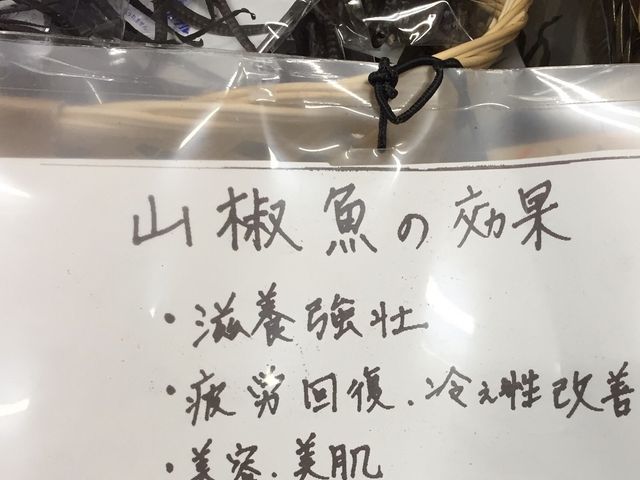 山椒魚の効果
・滋養強壮
・疲労回復.冷え性改善
・美容.美肌